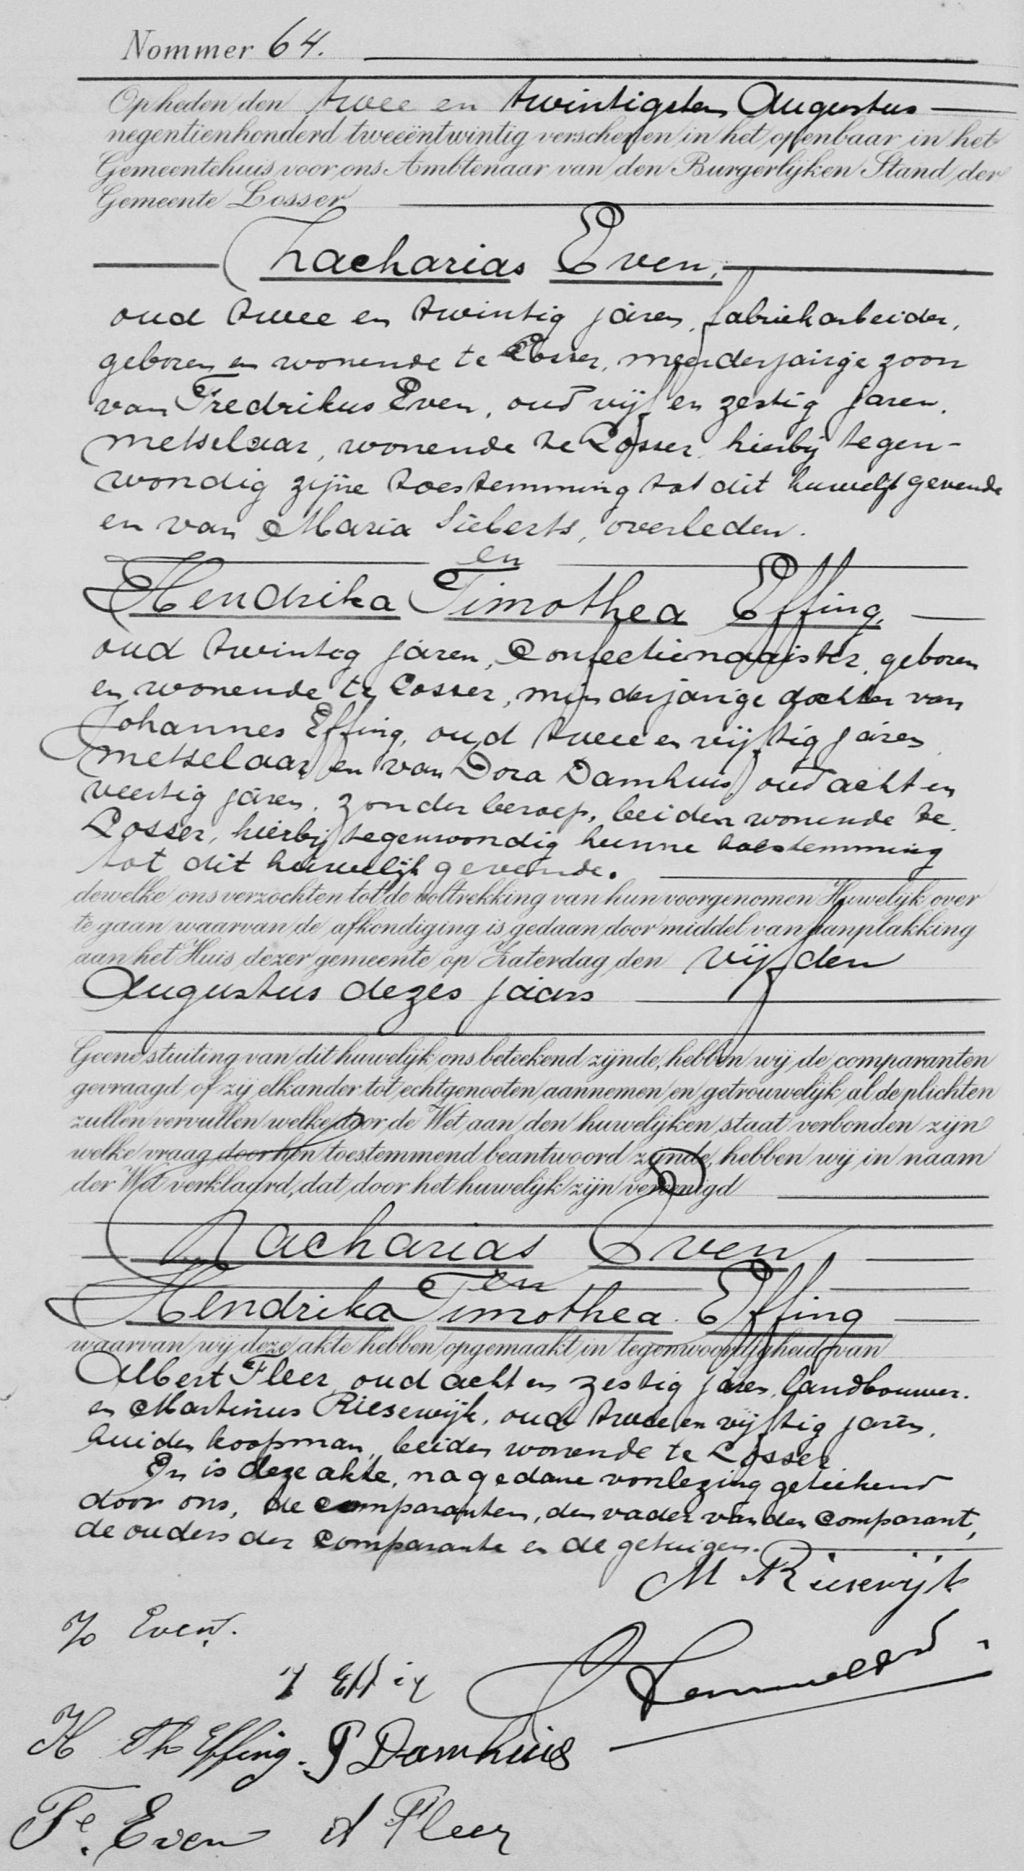 Nommer 64.
Op heden den twee en twintigsten Augustus
negentienhonderd tweeëntwintig verschenen in het openbaar in het
Gemeentehuis voor ons Ambtenaar van den Burgerlijken Stand der
Gemeente Losser
Zacharias Even,
oud twee en twintig jaren, fabriekarbeider,
geboren en wonende te Losser, meerderjarige zoon
van Fredrikus Even, oud vijf en zestig jaren,
metselaar, wonende te Losser, hierbij tegen-
woordig zijne toestemming tot dit huwelijk gevende
en van Maria Sieberts, overleden.
en
Hendrika Timothea Effing,
oud twintig jaren, Confectienaaister, geboren
en wonende te Losser, minderjarige dochter van
Johannes Effing, oud twee en vijftig jaren
metselaar, en van Dora Damhuis, oud acht en
veertig jaren, zonder beroep, beiden wonende te
Losser, hierbij tegenwoordig hunne toestemming
tot dit huwelijk gevende.
dewelke ons verzochten tot de voltrekking van hun voorgenomen Huwelijk over
te gaan waarvan de afkondiging is gedaan door middel van aanplakking
aan het Huis dezer gemeente op Zaterdag den vijfden
Augustus dezes jaars
Geene stuiting van dit huwelijk ons beteekend zijnde, hebben wij de comparanten
gevraagd of zij elkander tot echtgenooten aannemen en getrouwelijk al de plichten
zullen vervullen welke door de Wet aan den huwelijken staat verbonden zijn
welke vraag door hen toestemmend beantwoord zijnde, hebben wij in naam
der Wet verklaard, dat door het huwelijk zijn vereenigd
Zacharias Even
en
Hendrika Timothea Effing
waarvan wij deze akte hebben opgemaakt in tegenwoordigheid van
Albert Fleer, oud acht en zestig jaren, landbouwer.
en Martinus Riesewijk, oud twee en vijftig jaren,
huidenkoopman, beiden wonende te Losser.
En is deze akte, na gedane voorlezing geteekend
door ons, de comparanten, den vader van den Comparant,
de ouders der Comparante en de getuigen.
M Riesewijk
Z Even.
J Effing
H Th Effing. Damhuis
Fe. Even A Fleer